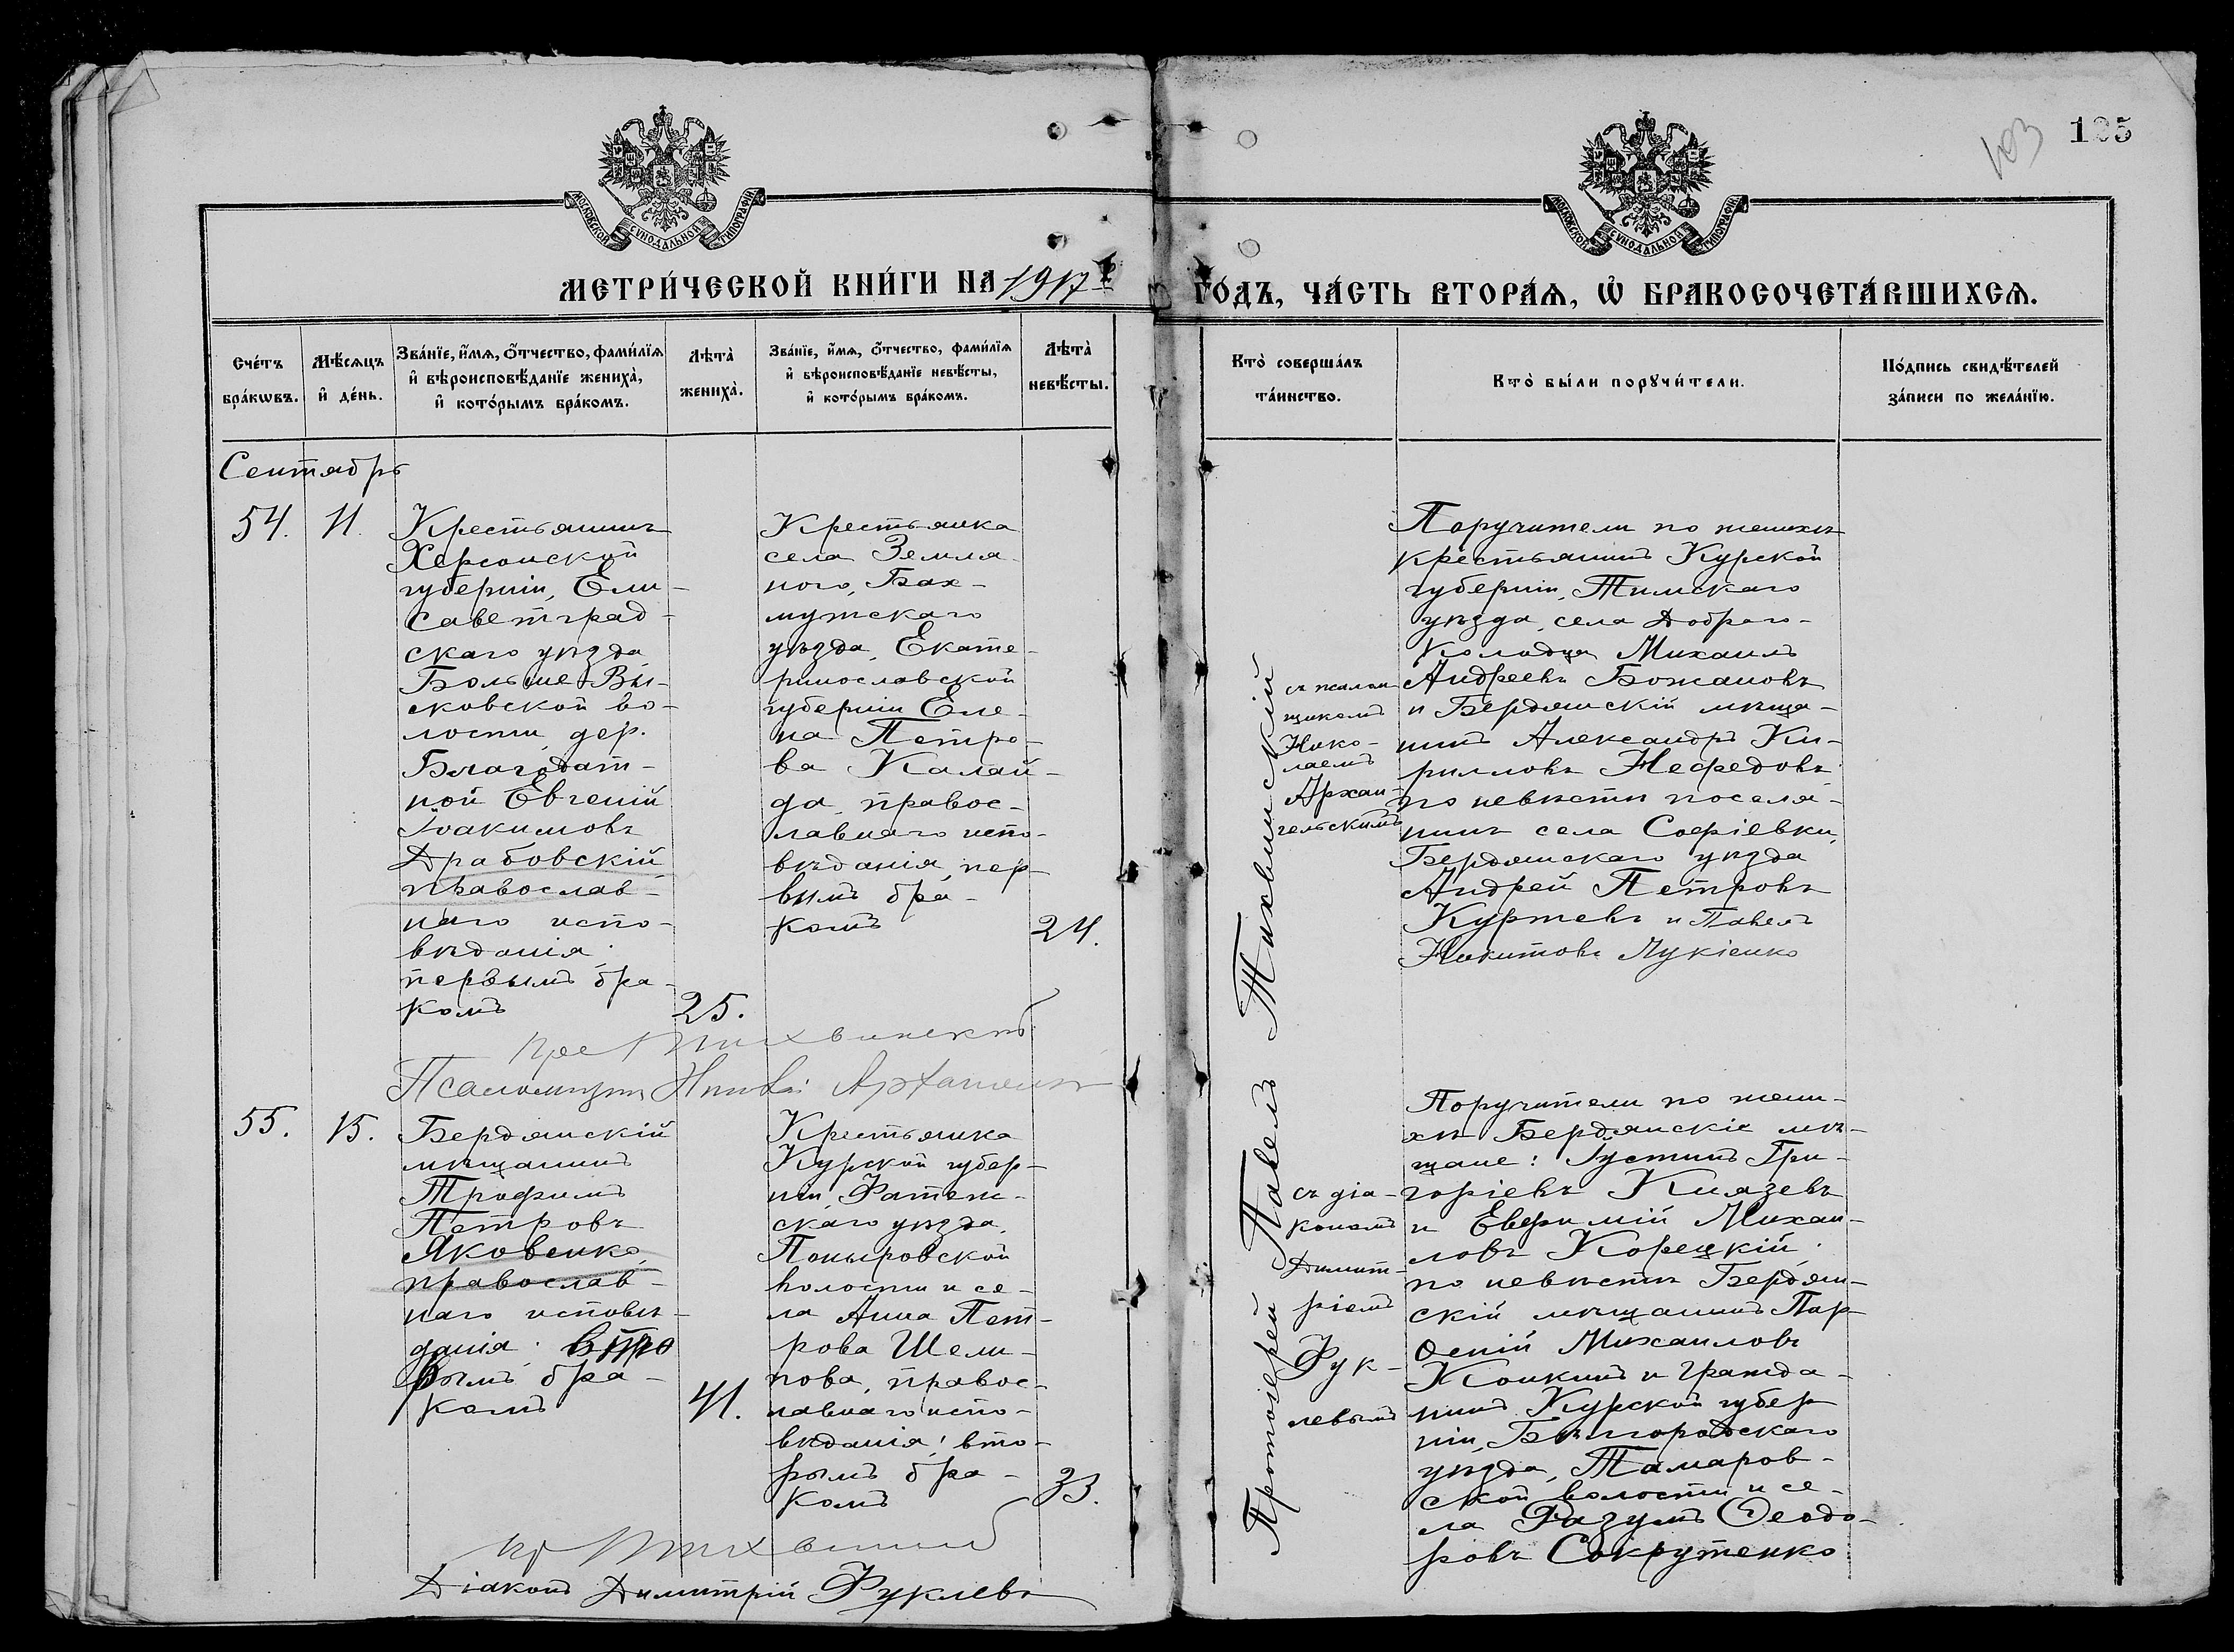 103
125
МОСКОВСКОЙ СѴНОДАЛЬНОЙ ТИПОГРАФІИ
МОСКОВСКОЙ СѴНОДАЛЬНОЙ ТИПОГРАФІИ
МЕТРИ́ЧЕСКОЙ КНИ́ГИ НА 1917 й
ГО́ДЪ, ЧА́СТЬ ВТОРА́Ѧ, Ѽ БРАКОСОЧЕТА́ВШИХСѦ.
Сче́тъ
бра́кѡвъ.
Мѣ́сѧцъ
и҆ де́нь.
Зва́нїе, и҆́мѧ, ѻ҆́тчество, фами́лїѧ
и҆ вѣроисповѣ́данїе жениха̀,
и҆ кото́рымъ бра́комъ.
Лѣта̀
жениха̀.
Зва́нїе, и҆́мѧ, ѻ҆́тчество, фами́лїѧ
и҆ вѣроисповѣ́данїе невѣ́сты,
и҆ кото́рымъ бра́комъ.
Лѣта̀
невѣ́сты.
Кто̀ соверша́лъ
та́инство.
Кто̀ бы́ли порꙋчи́тели.
По́дпись свидѣ́телей
за́писи по жела́нїю.
Сентябрь
54.
11.
Крестьянинъ
Херсонской
губерніи, Ели-
саветград-
скаго уѣзда
Больше-Вы-
сковской во-
лости, дер.
Благодат-
ной Евгеній
Іоакимовъ
Драбовскій,
православ-
наго испо-
вѣданія
первымъ бра-
комъ
25.
Крестьянка
села Земля-
ного, Бах-
мутскаго
уѣзда, Екате-
ринославской
губерніи Еле-
на Петро-
ва Калай-
да, правос-
лавнаго испо-
вѣданія, пер-
вымъ бра-
комъ
24.
Протоіерей Павелъ Тихвинскій
съ псалом
щикомъ
Нико-
лаемъ
Архан-
гельскимъ
Поручители по женихѣ
крестьянинъ Курской
губерніи, Тимскаго
уѣзда, села Добраго-
Колодця Михаилъ
Андреевъ Божановъ
и Бердянскій мѣща-
нинъ Александръ Ки-
рилловъ Нефедовъ
по невѣстѣ поселя-
нинъ села Софіевки,
Бердянскаго уѣзда
Андрей Петровъ
Куртевъ и Павелъ
Никитовъ Лукіенко
Тихвинскій
Псаломщикъ
55.
15.
Бердянскій
мѣщанинъ
Трофимъ
Петровъ
Яковенко,
православ-
наго исповѣ-
данія. вто
рымъ бра-
комъ
41.
Крестьянка
Курской губер-
ніи, Фатеж-
скаго уѣзда,
Поныровской
волости и се-
ла Анна Пет-
рова Шели-
пова, правос-
лавнаго испо-
вѣданія; вто-
рымъ бра-
комъ
33.
съ діа-
кономъ
Димит-
ріемъ
Фук-
левымъ
Поручители по жени-
хѣ Бердянскіе мѣ-
щане: Іустинъ Гри-
горіевъ Князевъ
и Евфимій Михаи-
ловъ Корецкій.
по невѣстѣ Бердян-
скій мѣщанинъ Пар-
ѳеній Михаиловъ
Конкинъ и гражда-
нинъ Курской губер
ніи, Бѣлгородскаго
уѣзда, Тамаров-
ской волости и се-
ла Разумъ Ѳеодо-
ровъ Сокрутенко
Діаконъ Димитрій Фуклевъ